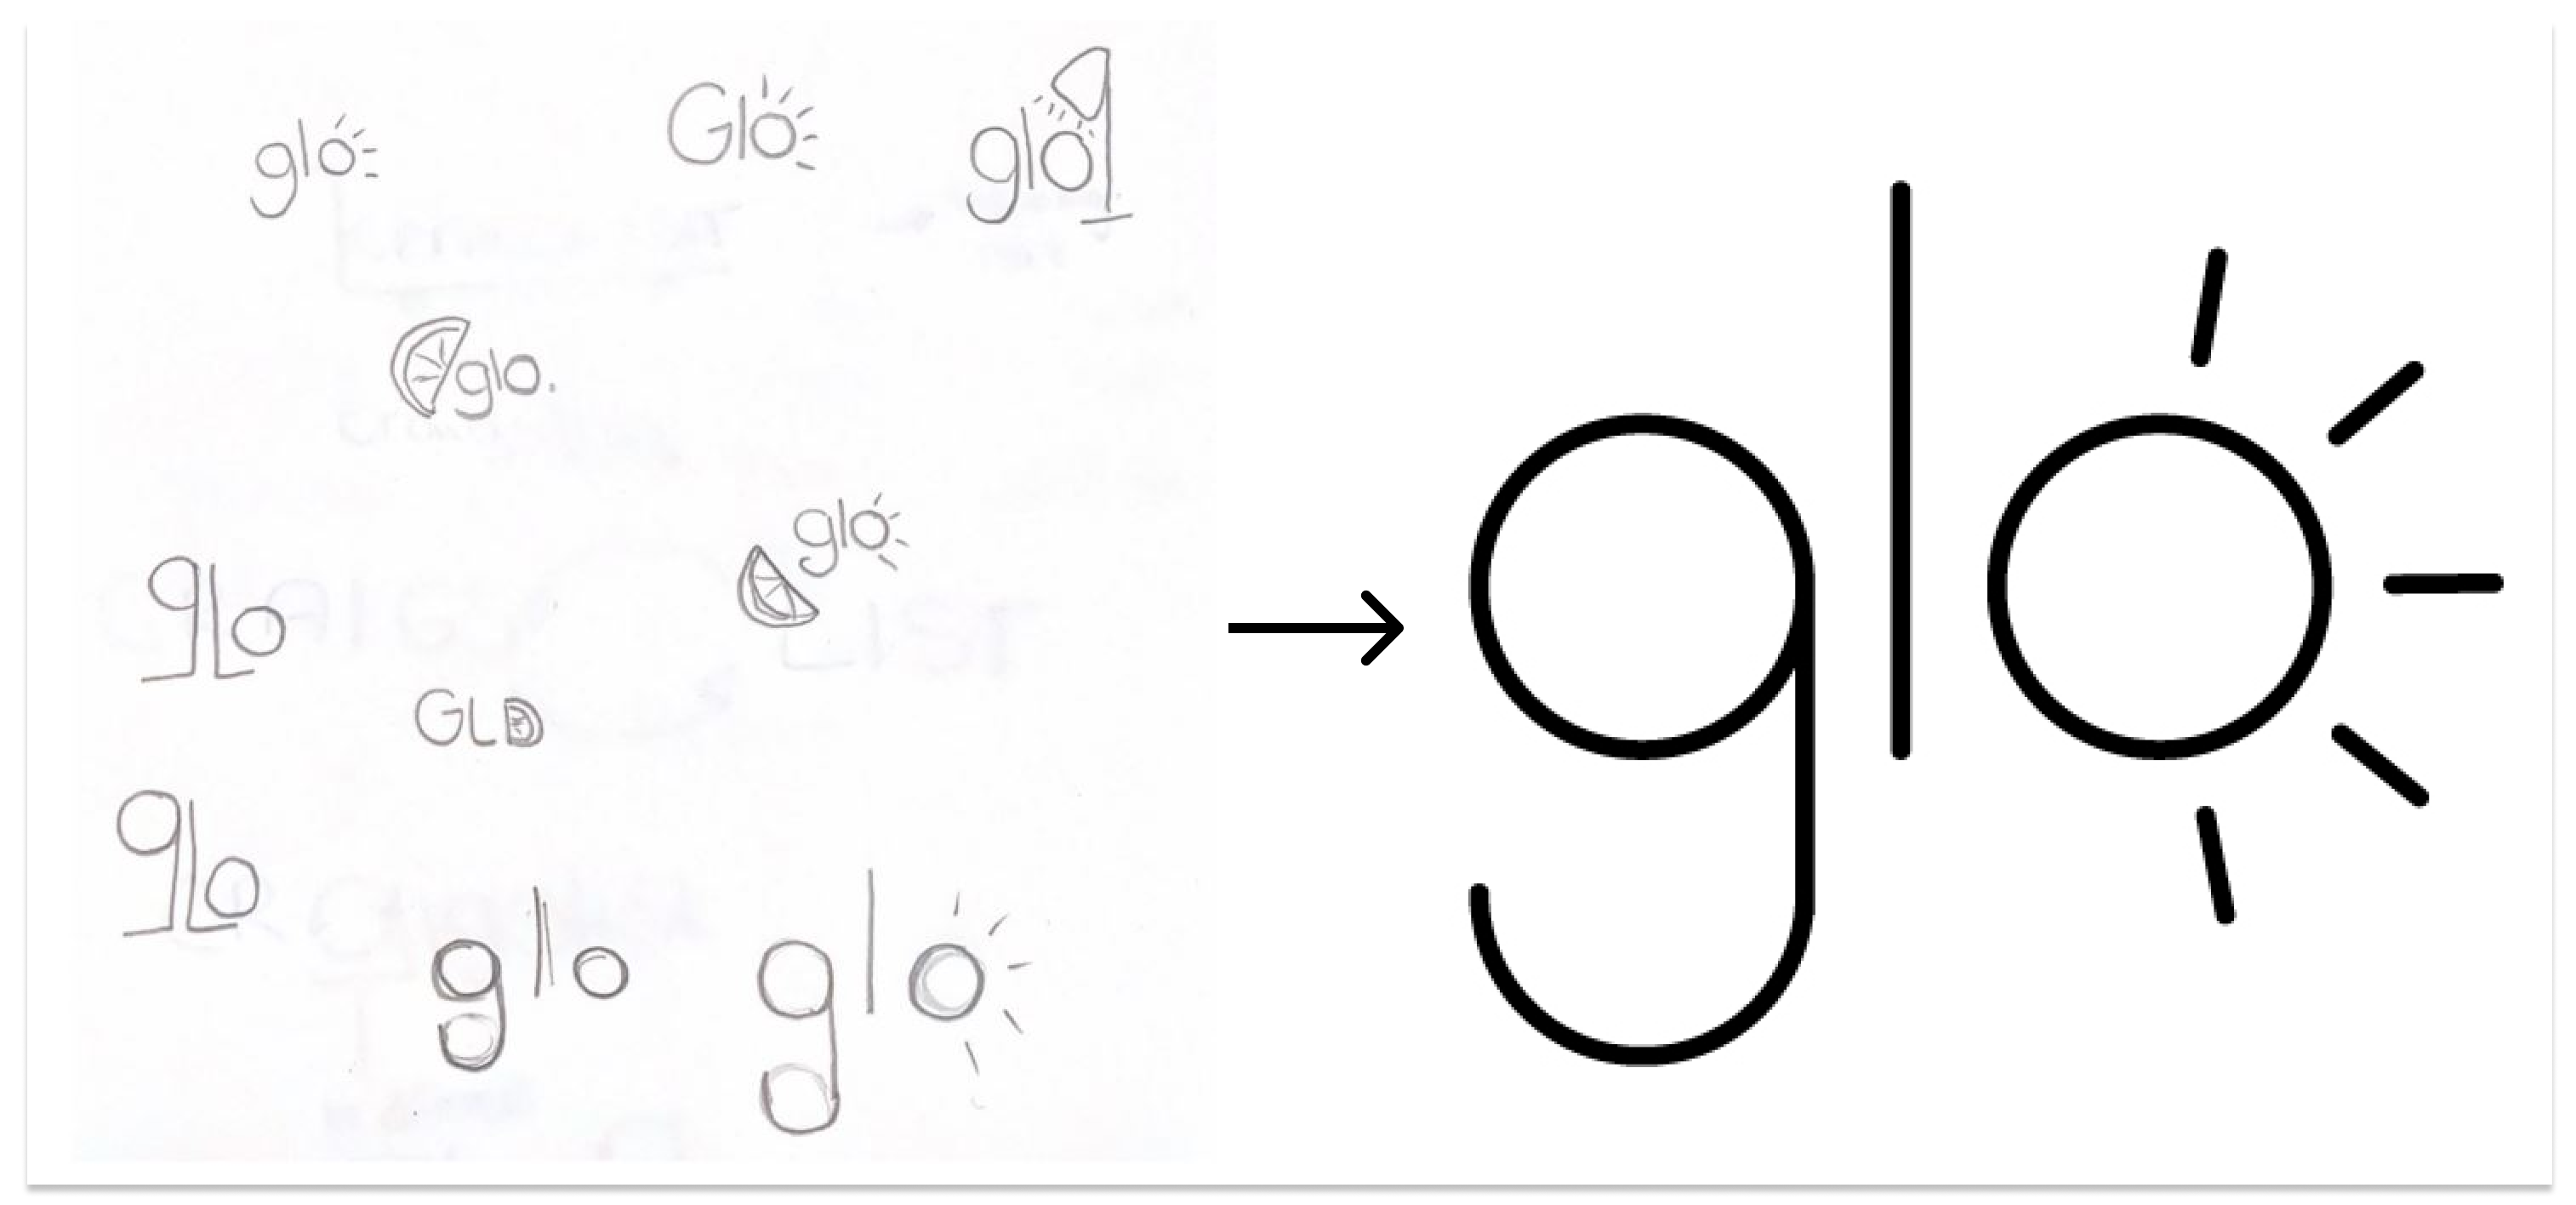 glo
Glo
glo
glo.
glo
glo
GLO
glo
glo
glo
glo